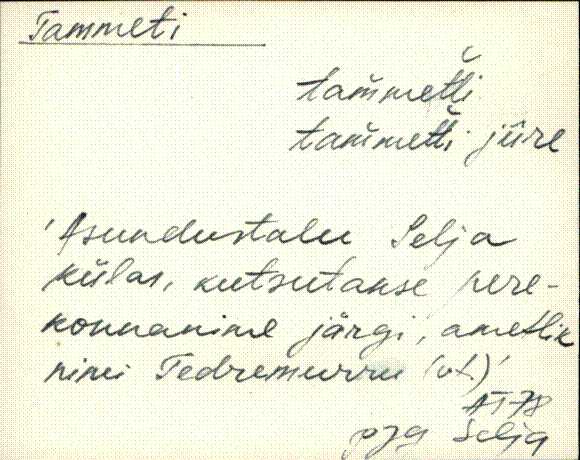 Tammeti
tam̆met̆ti
tam̆met̆ti jüre
'Asundustalu Selja
külas, kutsutakse pere-
konnanime järgi, ametlik
nimi Tedremurru (vt.)'
Selja